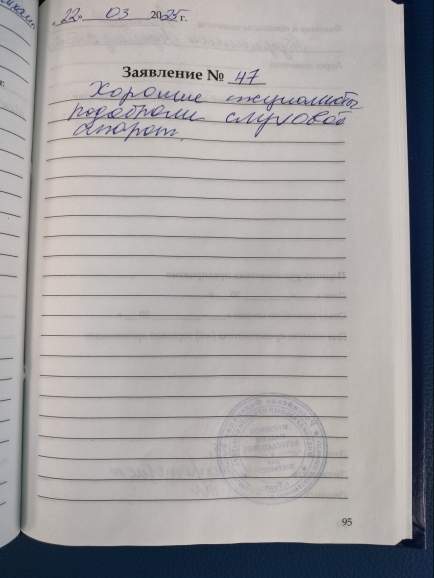 "22" 03 2025 г.
Заявление № 47
Хорошие специалисты
подобрали слуховой
апарат.
95